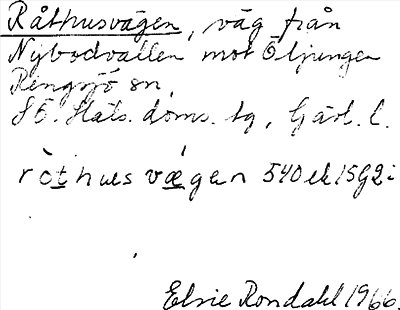 Råthusvägen, väg från
Nybodvallen mot Öljungen
Rengsjö sn,
SÖ. Häls. doms. tg, Gävl. l.
ròthus vǽgen 540 ek 15G2i
Elsie Rondahl 1966.